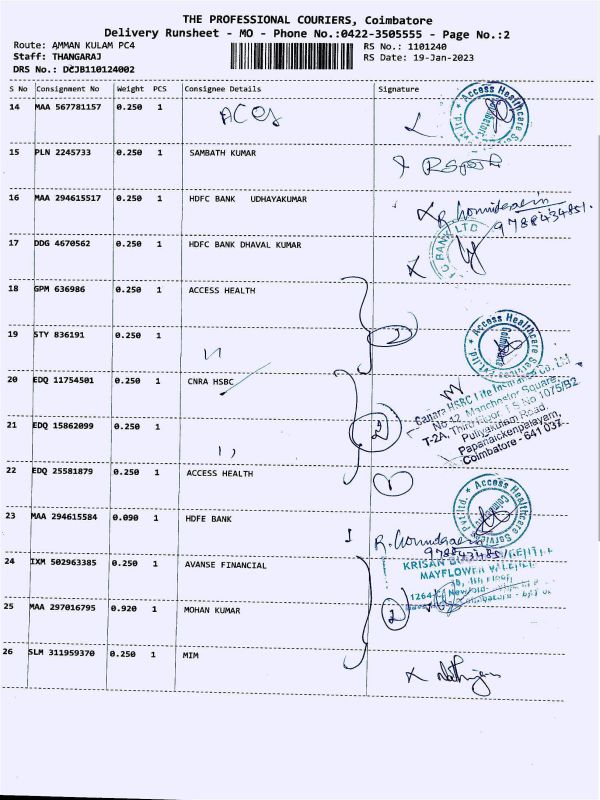 THE PROFESSIONAL COURIERS, Coimbatore
Delivery Runsheet - MO - Phone No.:0422-3505555 - Page No.:2
Route: AMMAN KULAM PC4 RS No.: 1101240
Staff: THANGARAJ RS Date: 19-Jan-2023
DRS No.: DCJB110124002
S No Consignment No Weight PCS Consignee Details Signature
14 MAA 567781157 0.250 1
Access Healthcare Coimbatore
15 PLN 2245733 0.250 1 SAMBATH KUMAR
16 MAA 294615517 0.250 1 HDFC BANK UDHAYAKUMAR
9788434851.
17 DDG 4670562 0.250 1 HDFC BANK DHAVAL KUMAR
BANK LTD
18 GPM 636986 0.250 1 ACCESS HEALTH
2
19 STY 836191 0.250 1 ״
Access Healthcare Services Pvt.ltd. Coimbatore
20 EDQ 11754501 0.250 1 CNRA HSBC
Canara HSBC Life Insurance Co, Ltd
No 12, Manchester Square,
T-2A, Third Floor, T.S No 1075/B2
Puliyakulam Road,
Papanaickenpalayam,
Coimbatore - 641 037.
21 EDQ 15862099 0.250 1 ״
2
22 EDQ 25581879 0.250 1 ACCESS HEALTH
1
Access Healthcare Services Pvt.ltd. Coimbatore
23 MAA 294615584 0.090 1 HDFE BANK
24 IXM 502963385 0.250 1 AVANSE FINANCIAL
KRISAN
MAYFLOWER
25 MAA 297016795 0.920 1 MOHAN KUMAR
2
26 SLM 311959370 0.250 1 MIM